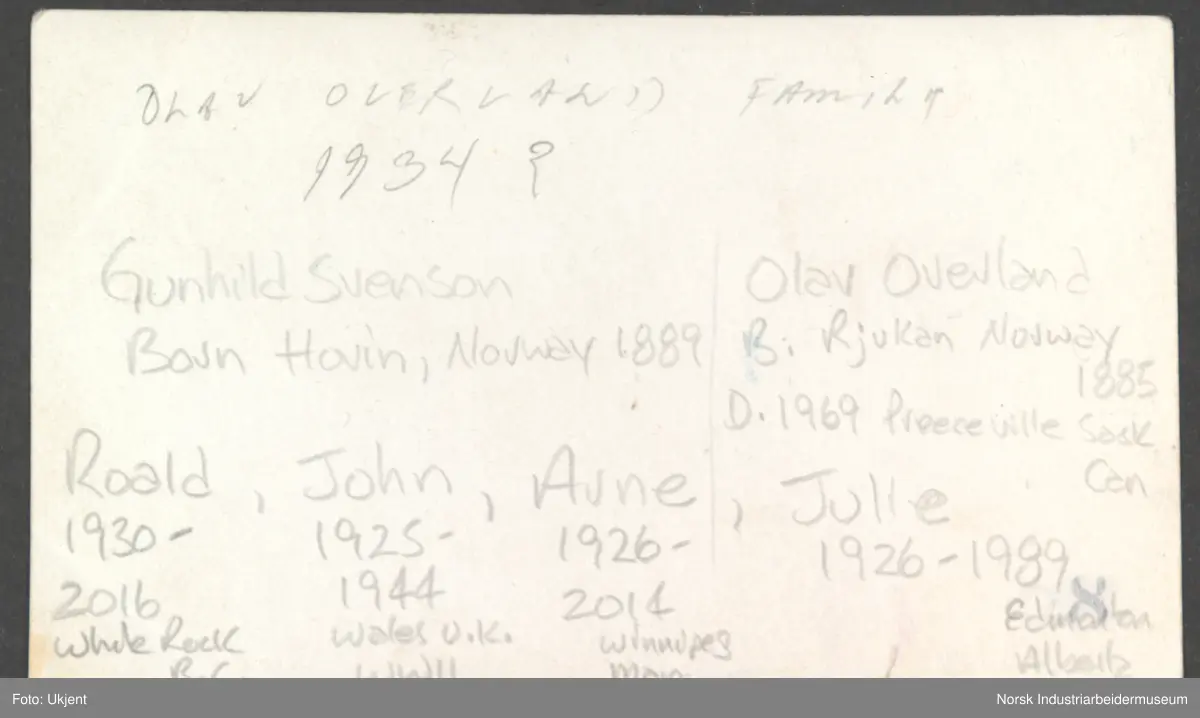 OLAV OVERLAND FAMILY
1934 ?
Gunhild Svenson
Born Hovin, Norway 1889
Olav Overland
B: Rjukan Norway
1885
D. 1969 Preeceville Sask
Can
Roald, John, Arne, Julie
1930- 1925- 1926- 1926-1989
2016 1944 2014 Edmonton
White Rock Wales U.K. Winnipeg Alberta
B.C. WWII Man.
Foto: Ukjent
Norsk Industriarbeidermuseum